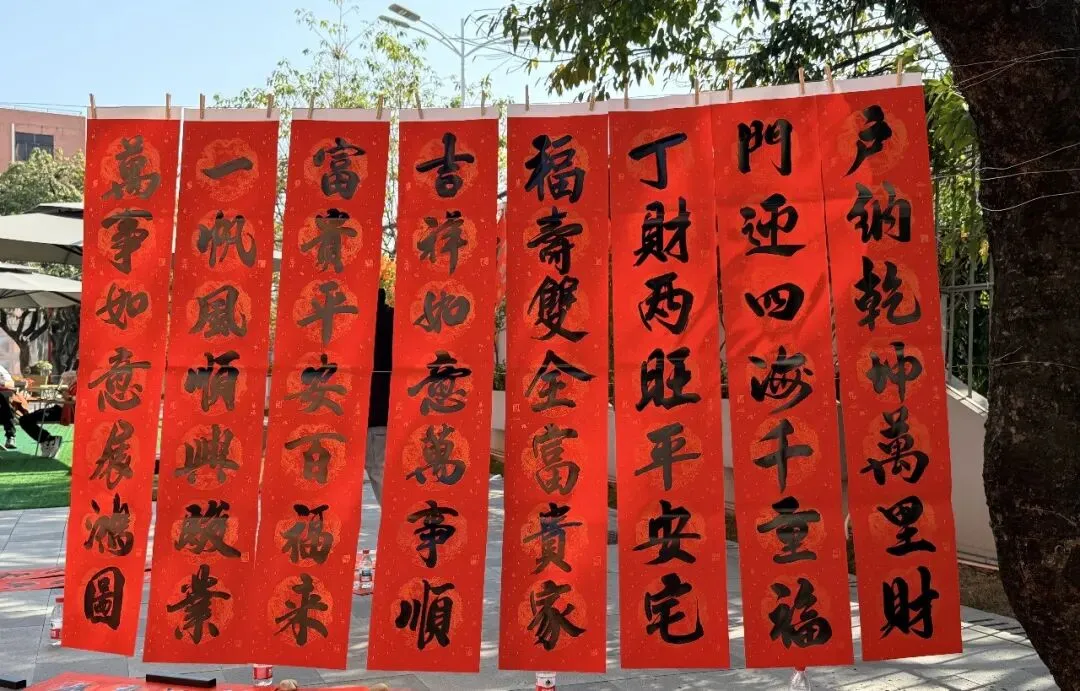 户納乾坤萬里財
門迎四海千重福
丁財两旺平安宅
福壽雙全富貴家
吉祥如意萬事順
富貴平安百福来
一帆風順興駿業
萬事如意展鴻圖